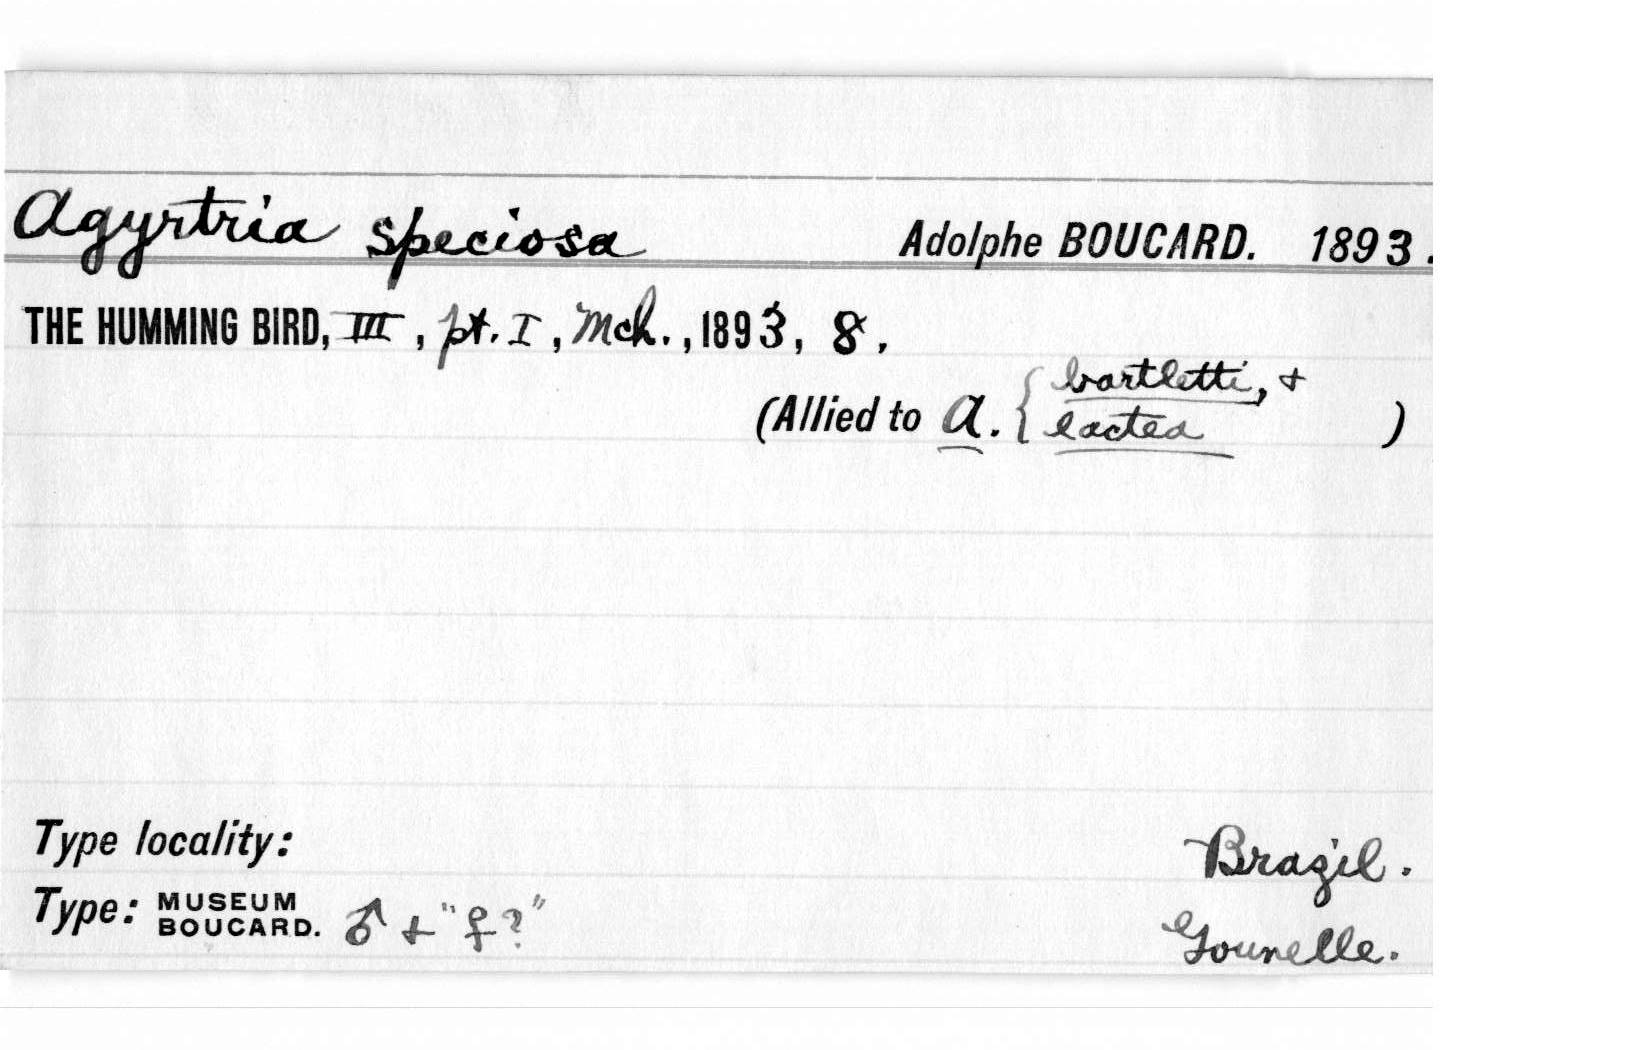 Agyrtria speciosa Adolphe BOUCARD. 1893.
THE HUMMING BIRD, III, pt. I, Mch., 1893, 8.
(Allied to A. { bartletti, +
lactea )
Type locality: Brazil.
Type: MUSEUM BOUCARD. ♂ + "♀?" Gounelle.